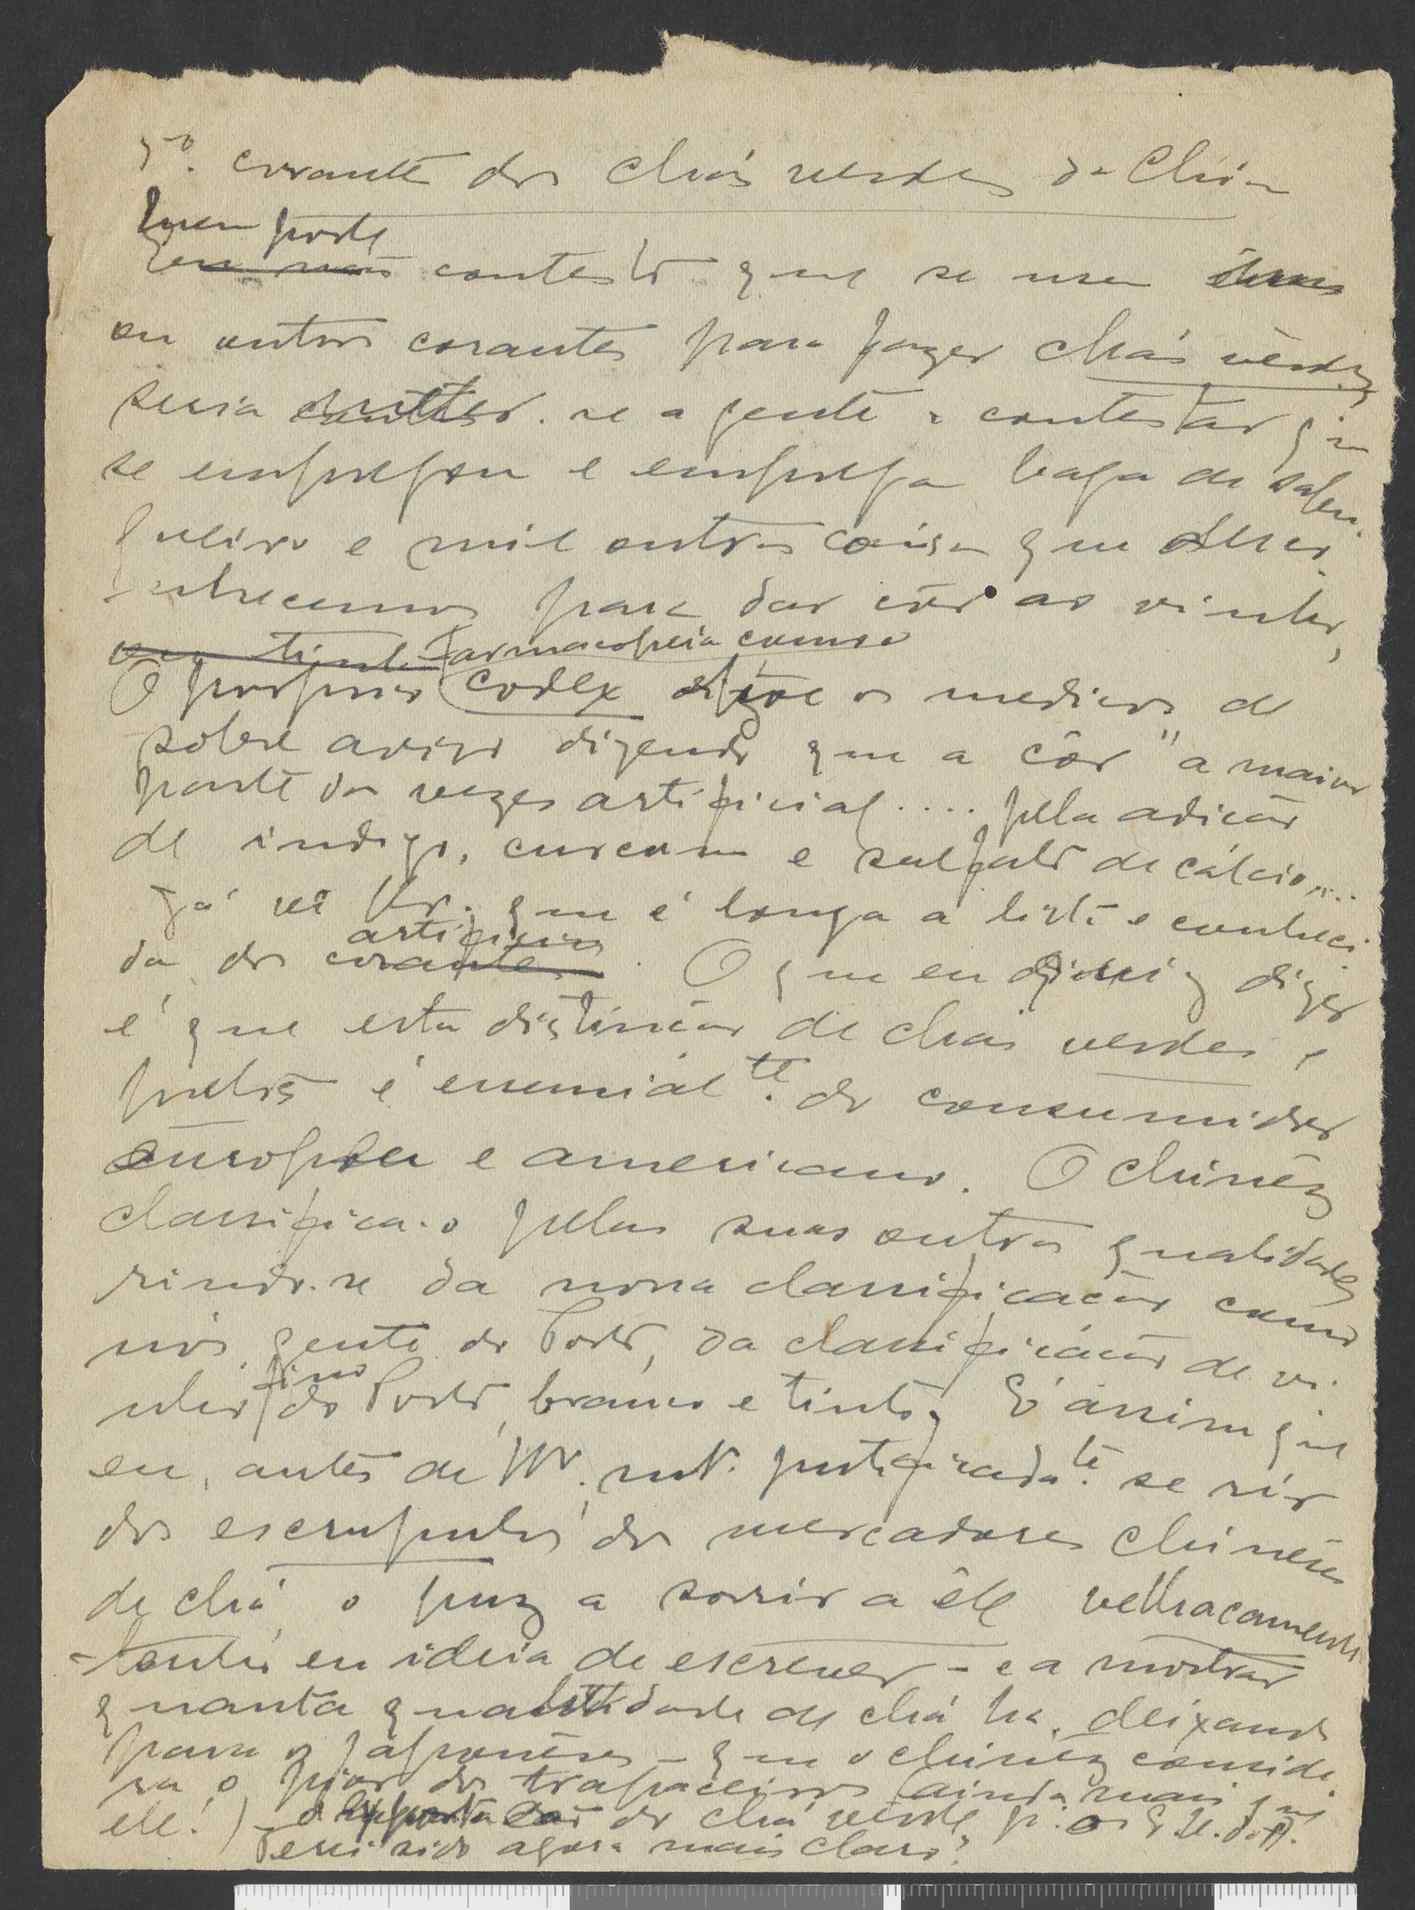 5º. corante dos chás verdes da China
Quem pode
Eu não contesto que se usem êsses
ou outros corantes para fazer chás vêrdes
seria se a gente a contestar que
se empregou e emprega baga de sabu-
gueiro e mil outras coisas que
nhecemos para dar côr ao vinho,
farmacopeia como o
O proprio codex põe os medicos de
sobre aviso dizendo que a côr "a maior
parte das vezes artificial .... pela adição
de indigo, curcuma e sulfato de cálcio....
Já vê Vr. que é longa a lista e conheci-
artificios
da dos corantes. O que eu quiz dizer
é que esta distinção de chás verdes e
pretos é essencialte. do consumidor
europeu e americano. O chinêz
classifica-o pelas suas outras qualidades
rindo-se da nossa classificação como
nós, gente do Porto, da classificação de vi-
fino
nhos do Porto, branco e tinto, E' assim que
eu, antes de Vr. mt. justificadate. se rir
dos escrupulos dos mercadores chinêses
de chá o puz a sorrir a êle velhacamente
- tenho eu ideia de escrever - e a mostrar
quanta qualidade de chá ha, deixando
para os japonêses - que o chinêz conside-
ra o pior dos trapaceiros (ainda mais que
ele!) - a exportação do chá verde p. os E. U. da A.
Terei sido agora mais claro?